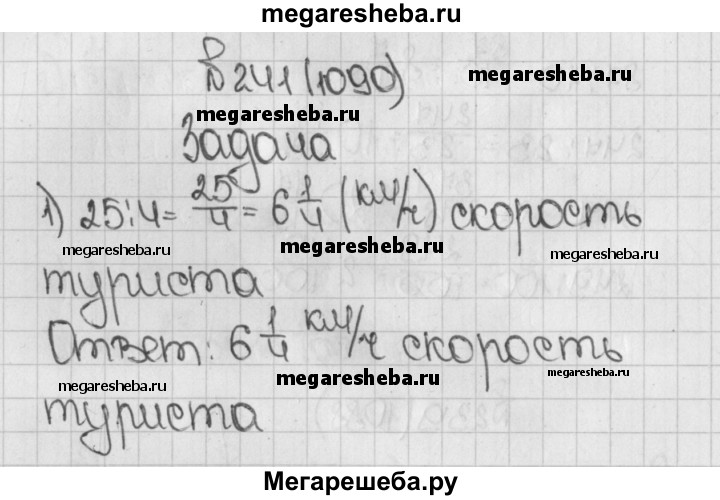 megaresheba.ru
№241 (1090)
megaresheba.ru
megaresheba.ru
Задача
1) 25:4= 25/4 = 6 1/4 (км/ч) скорость
megaresheba.ru megaresheba.ru
туриста
Ответ: 6 1/4 км/ч скорость
megaresheba.ru megaresheba.ru megaresheba.ru
туриста
Мегарешеба.ру